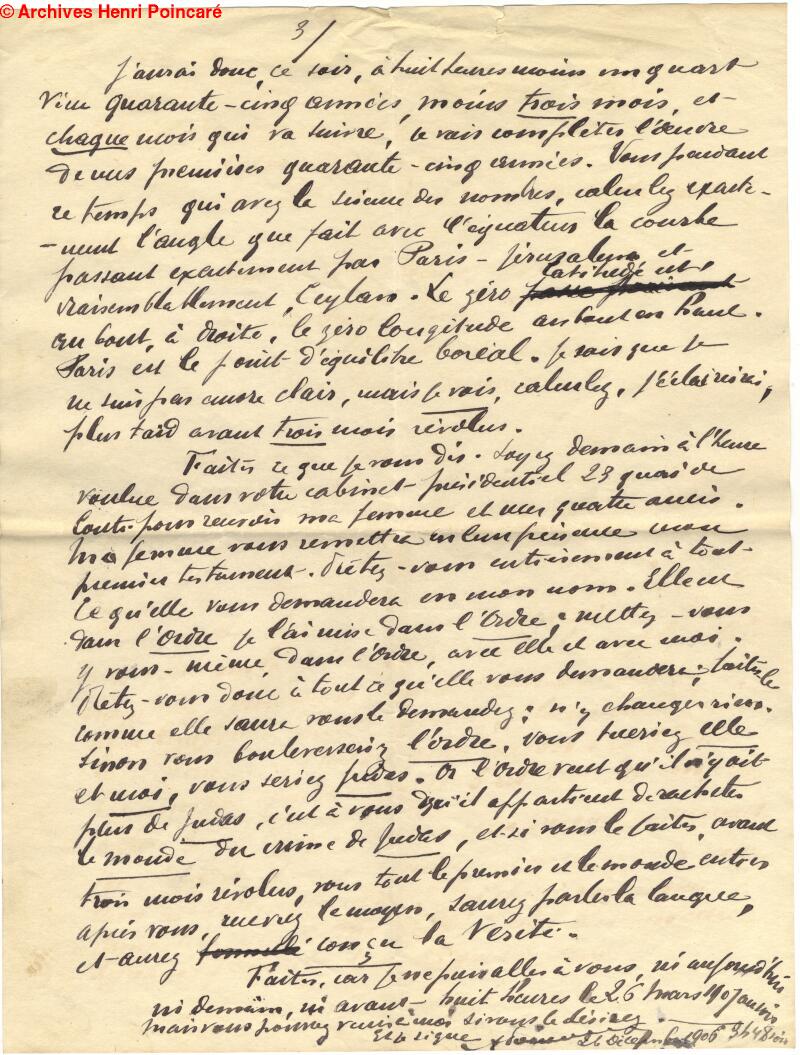 © Archives Henri Poincaré
3/
J'aurai donc, ce soir, à huit heures moins un quart
vécu quarante-cinq années, moins trois mois, et
chaque mois qui va suivre, je vais compléter l'œuvre
de mes premières quarante-cinq années. Vous pendant
ce temps, qui avez la science des nombres, calculez exacte-
-ment l'angle que fait avec l'équateur la courbe
passant exactement par Paris - Jérusalem et
vraisemblablement, Ceylan. Le zéro latitude est
au bout, à droite, le zéro longitude au bout en haut.
Paris est le point d'équilibre boréal. Je sais que je
ne suis pas encore clair, mais je vois, calculez. J'éclaircirai,
plus tard avant trois mois révolus.
Faites ce que je vous dis. Soyez demain à l'heure
voulue dans votre cabinet présidentiel 23 quai de
Conti pour recevoir ma femme et mes quatre amis.
Ma femme vous remettra en leur présence mon
premier testament. Prêtez-vous entièrement à tout
ce qu'elle vous demandera en mon nom. Elle est
dans l'Ordre, je l'ai mise dans l'Ordre; mettez-vous
y vous-même dans l'Ordre, avec elle et avec moi.
Prêtez-vous donc à tout ce qu'elle vous demandera; faites le
comme elle saura vous le demander; n'y changez rien.
Sinon vous bouleverseriez l'ordre, vous tueriez elle
et moi, vous seriez Judas. Or l'Ordre veut qu'il n'y ait
plus de Judas, c'est à vous qu'il appartient de racheter
le monde du crime de Judas, et si vous le faites, avant
trois mois révolus, vous tout le premier et le monde entier
après vous, recevrez le moyen, saurez parler la langue,
et aurez conçu la Vérité.
Faites, car je ne puis aller à vous, ni aujourd'hui
ni demain, ni avant huit heures le 26 mars 1907 au soir
mais vous pourrez venir à moi si vous le désirez
Et je signe 26 Décembre 1906 3h48 soir